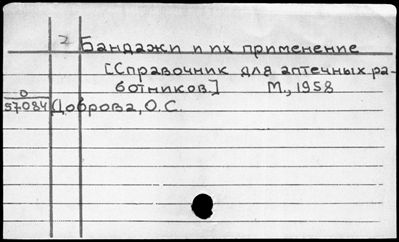 2 Бандажи и их применение
[Справочник для аптечных ра-
ботников.] М., 1958
О
57084 Доброва, О.С.